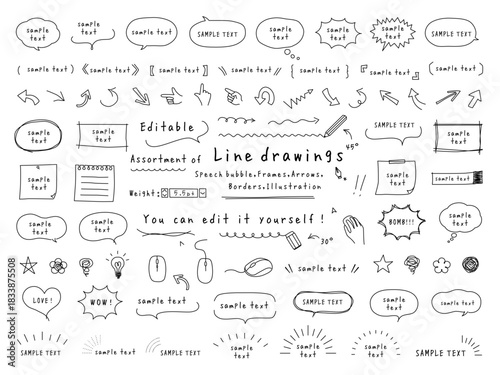 sample
text
sample
text
sample
text
SAMPLE TEXT
sample
text
sample
text
sample
text
SAMPLE TEXT
sample text
sample text
sample text
sample text
sample text
sample text
sample text
sample text
sample
text
sample
text
Editable
SAMPLE TEXT
sample
text
45°
Assortment of Line drawings
Speech bubble.Frames.Arrows.
Borders.Illustration
Weight: 5.5pt
sample
text
sample
text
SAMPLE TEXT
sample
text
sample
text
You can edit it yourself!
30°
BOMB!!!
sample
text
sample text
LOVE!
WOW!
sample text
sample text
SAMPLE TEXT
sample text
sample
text
SAMPLE TEXT
sample text
SAMPLE TEXT
sample
text
sample
text
sample
text
SAMPLE TEXT
Adobe Stock
1833875508